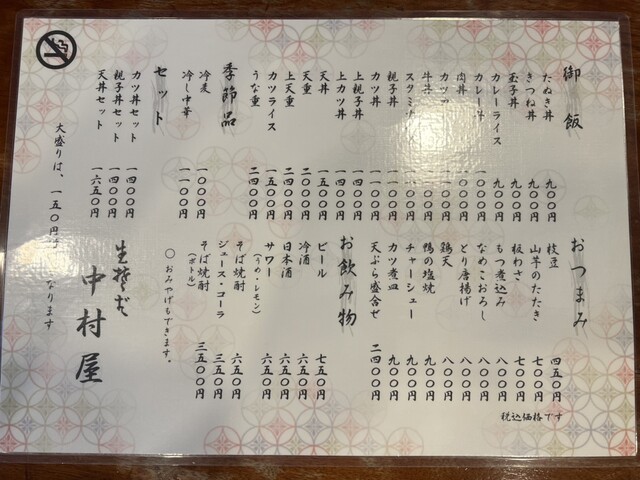 御飯
たぬき丼 九〇〇円
きつね丼 九〇〇円
玉子丼 九〇〇円
カレーライス 九〇〇円
カレー丼 一〇〇〇円
肉丼 一〇〇〇円
親子丼 一一〇〇円
カツ丼 一一〇〇円
上親子丼 一四〇〇円
上カツ丼 一四〇〇円
天丼 一五〇〇円
天重 二〇〇〇円
上天重 二四〇〇円
カツライス 一五〇〇円
うな重 二四〇〇円
季節品
冷麦 一〇〇〇円
冷し中華 一一〇〇円
セット
カツ丼セット 一四〇〇円
親子丼セット 一四〇〇円
天丼セット 一六五〇円
大盛りは、一五〇円 なります
おつまみ
枝豆 四五〇円
山芋のたたき 七〇〇円
板わさ 七〇〇円
もつ煮込み 八〇〇円
なめこおろし 八〇〇円
とり唐揚げ 八〇〇円
鶏天 八〇〇円
鴨の塩焼 九〇〇円
チャーシュー 九〇〇円
カツ煮皿 九〇〇円
天ぷら盛合せ 二四〇〇円
お飲み物
ビール 七五〇円
冷酒 六五〇円
日本酒 六五〇円
サワー 六五〇円
(うめ・レモン)
そば焼酎 六五〇円
ジュース・コーラ 三五〇円
そば焼酎 三五〇〇円
(ボトル)
〇おみやげもできます。
生そば
中村屋
税込価格です